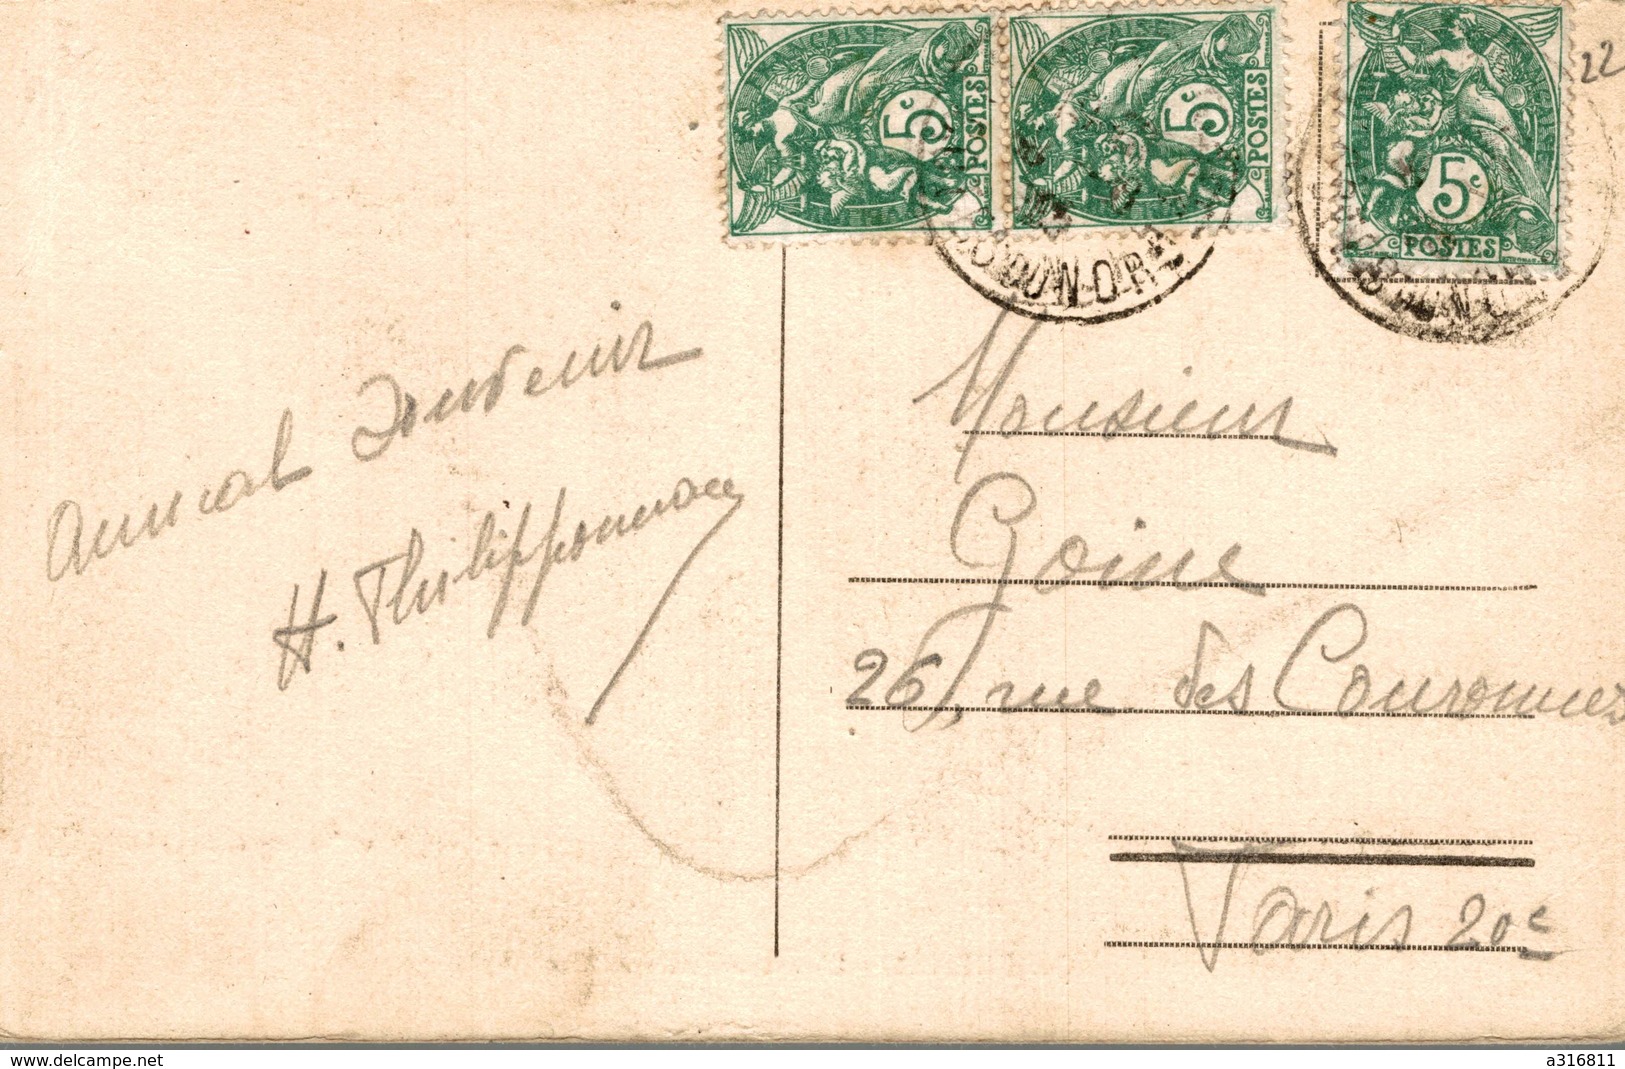 5c
POSTES
5c
POSTES
5c
POSTES
22
Amical Souvenir
H. Philipponneau
Monsieur
Goine
26, rue des Couronnes
Paris 20e
www.delcampe.net
a316811